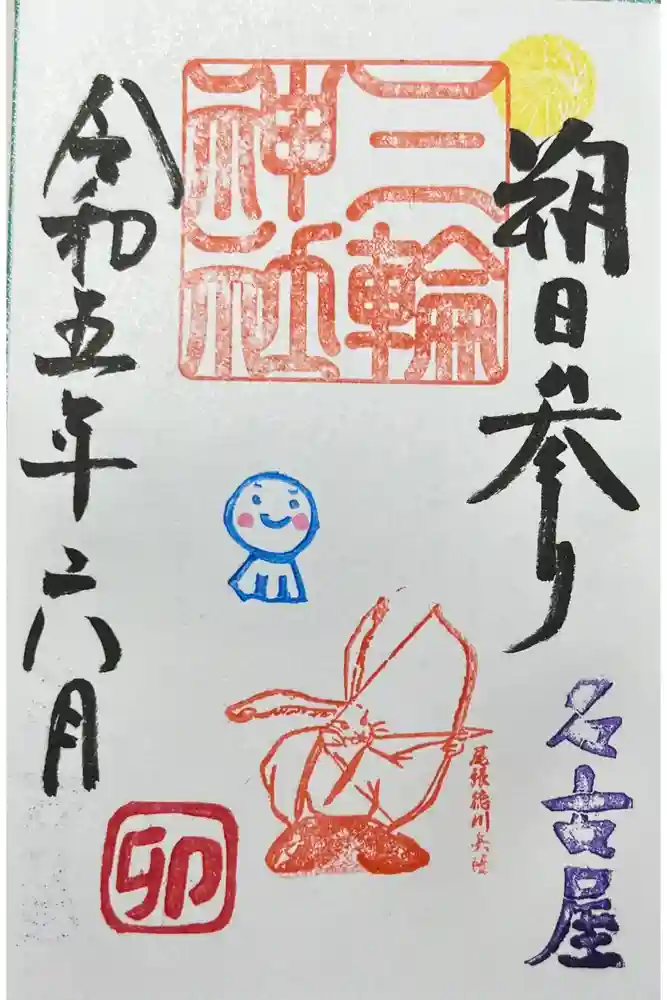 朔日参り
名古屋
三輪
神社
尾張徳川兵法
令和五年六月
卯